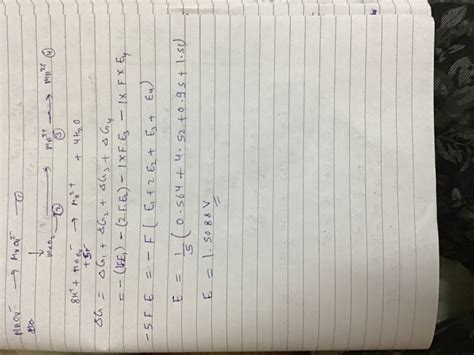 MnO4⁻ → MnO4²⁻ ①
↓
MnO2 ② → Mn³⁺ ③ → Mn²⁺ ④
8H⁺ + MnO4⁻ → Mn²⁺ + 4H2O
+ 5e⁻
ΔG = ΔG1 + ΔG2 + ΔG3 + ΔG4
= -(1FE1) - (2FE2) - 1×F E3 - 1×F×E4
-5F E = -F [ E1 + 2E2 + E3 + E4 )
E = 1/5 ( 0.564 + 4.52 + 0.95 + 1.51 )
E = 1.5088 V